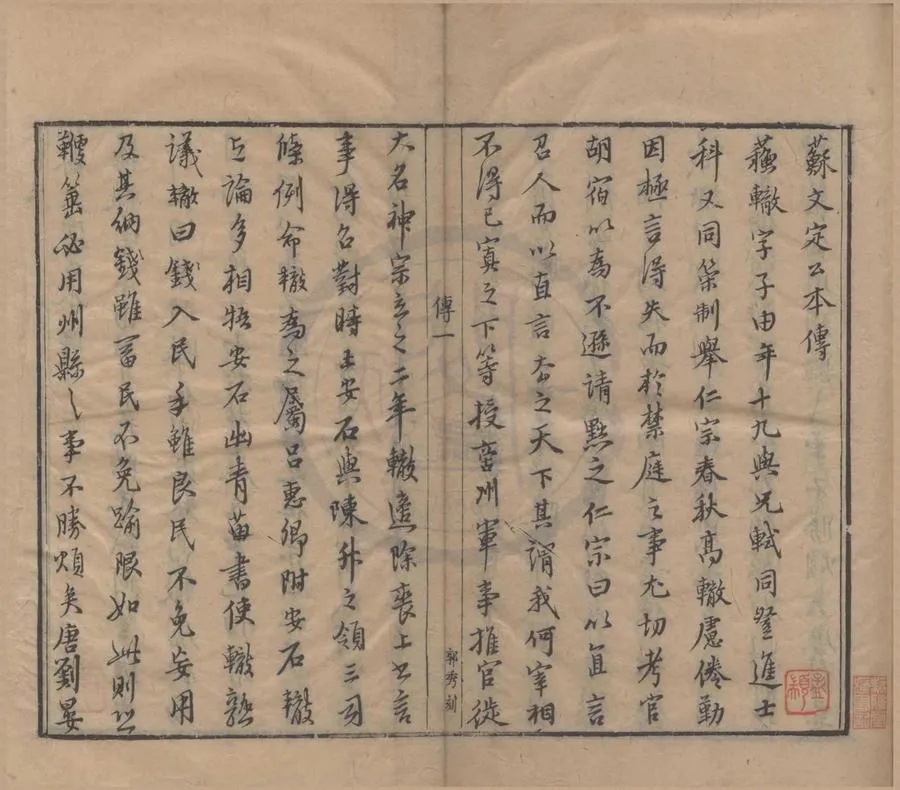 蘇文定公本傳
蘇轍字子由年十九與兄軾同登進士
科又同策制舉仁宗春秋高轍慮倦勤
因極言得失而於禁庭之事尤切考官
胡宿以為不遜請黜之仁宗曰以直言
召人而以直言棄之天下其謂我何宰相
不得已寘之下等授商州軍事推官徙
傳一
郭秀刻
大名神宗立之二年轍適除喪上書言
事得召對時王安石與陳升之領三司
條例命轍為之屬呂惠卿附安石轍
與論多相牾安石出青苗書使轍熟
議轍曰錢入民手雖良民不免妄用
及其納錢雖富民不免踰限如此則恐
鞭箠必用州縣之事不勝煩矣唐劉晏